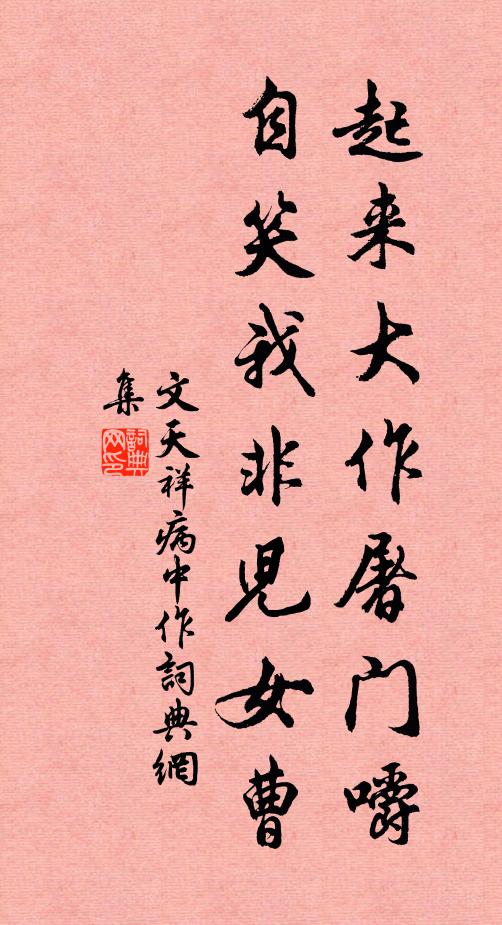 起来大作屠门嚼
自笑我非児女曹
文天祥病中作詞典網
集
詞典网印